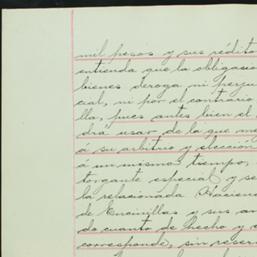 mil pesos y sus rédito
entienda que la obligasio
bienes deroga ni perju
cial, ni por el contrario
lla, pues antes bien el
drá usar de la que me
á su arbitrio y elección
á un mismo tiempo,
torgante especial y se
la relacionada Hacien
de Encinillas y sus an
do cuanto de hecho y
corresponde, sin reser